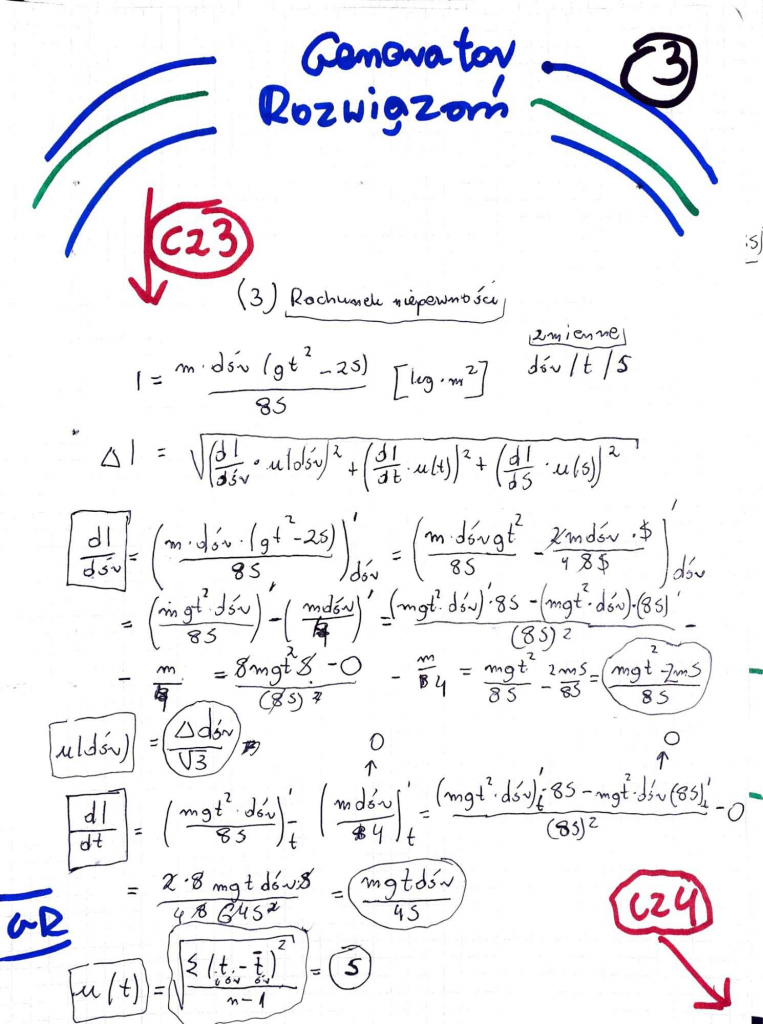 Generator
Rozwiązań
3
cz3
(3) Rachunek niepewności
zmienne
dśr / t / S
I = m·dśr (gt² - 2S) / 8S [kg·m²]
ΔI = √((dI/dśr · u(dśr))² + (dI/dt · u(t))² + (dI/dS · u(S))²)
dI/dśr = (m·dśr·(gt²-2S) / 8S)'dśr = (m·dśrgt² / 8S - 2mdśr·S / 4 8S)'dśr
= (mgt²·dśr / 8S)' - (mdśr / 4)' = (mgt²·dśr)'·8S - (mgt²·dśr)·(8S)' / (8S)² -
- m / 4 = 8mgt²S - 0 / (8S)² - m / 8 4 = mgt² / 8S - 2mS / 8S = mgt² - 2mS / 8S
u(dśr) = Δdśr / √3
0 0
dI/dt = (mgt²·dśr / 8S)'t - (mdśr / 8 4)'t = (mgt²·dśr)'t·8S - mgt²·dśr(8S)'t / (8S)² - 0
= 2·8 mgtdśr·S / 4 8 64S² = mgtdśr / 4S
GR
cz4
u(t) = √(Σ(tśr - t̄śr)² / n-1) = S